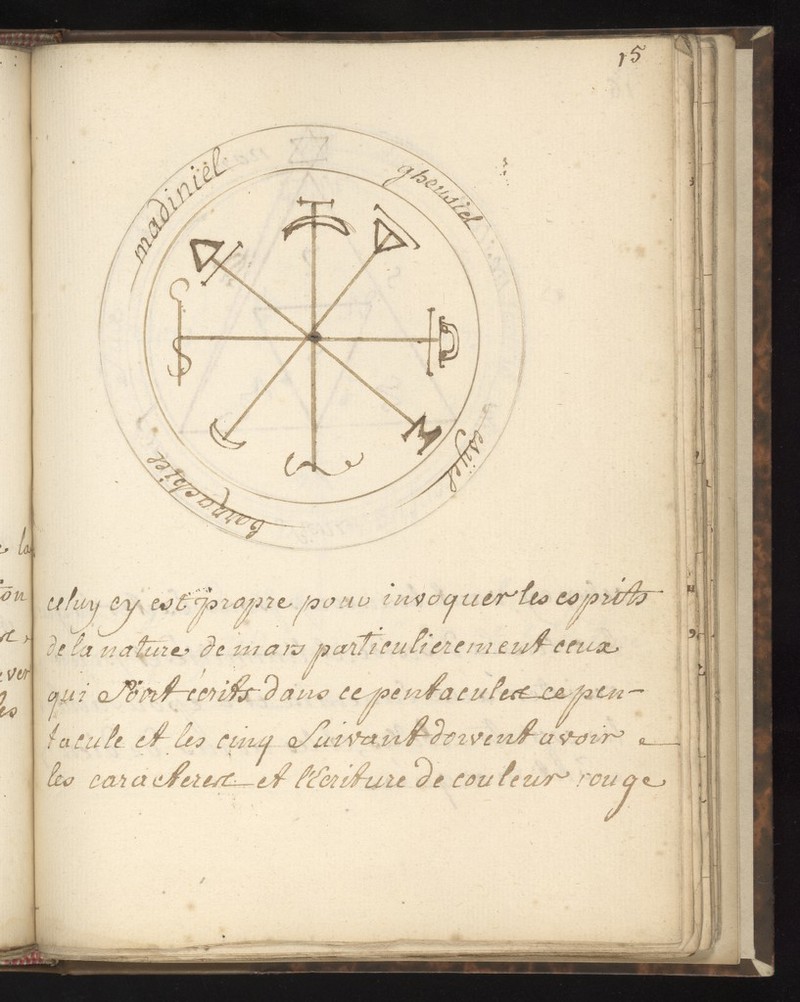 15
madiniël
gheusiel
esijel
barzachiel
la
on
ver
es
celuy cy est propre pour invoquer les esprits
de la nature de mars particulierement ceux
qui sont écrits dans ce pentacule et ce pen-
tacule et les cinq suivant doivent avoir
les caracteres et l'ecriture de couleur rouge